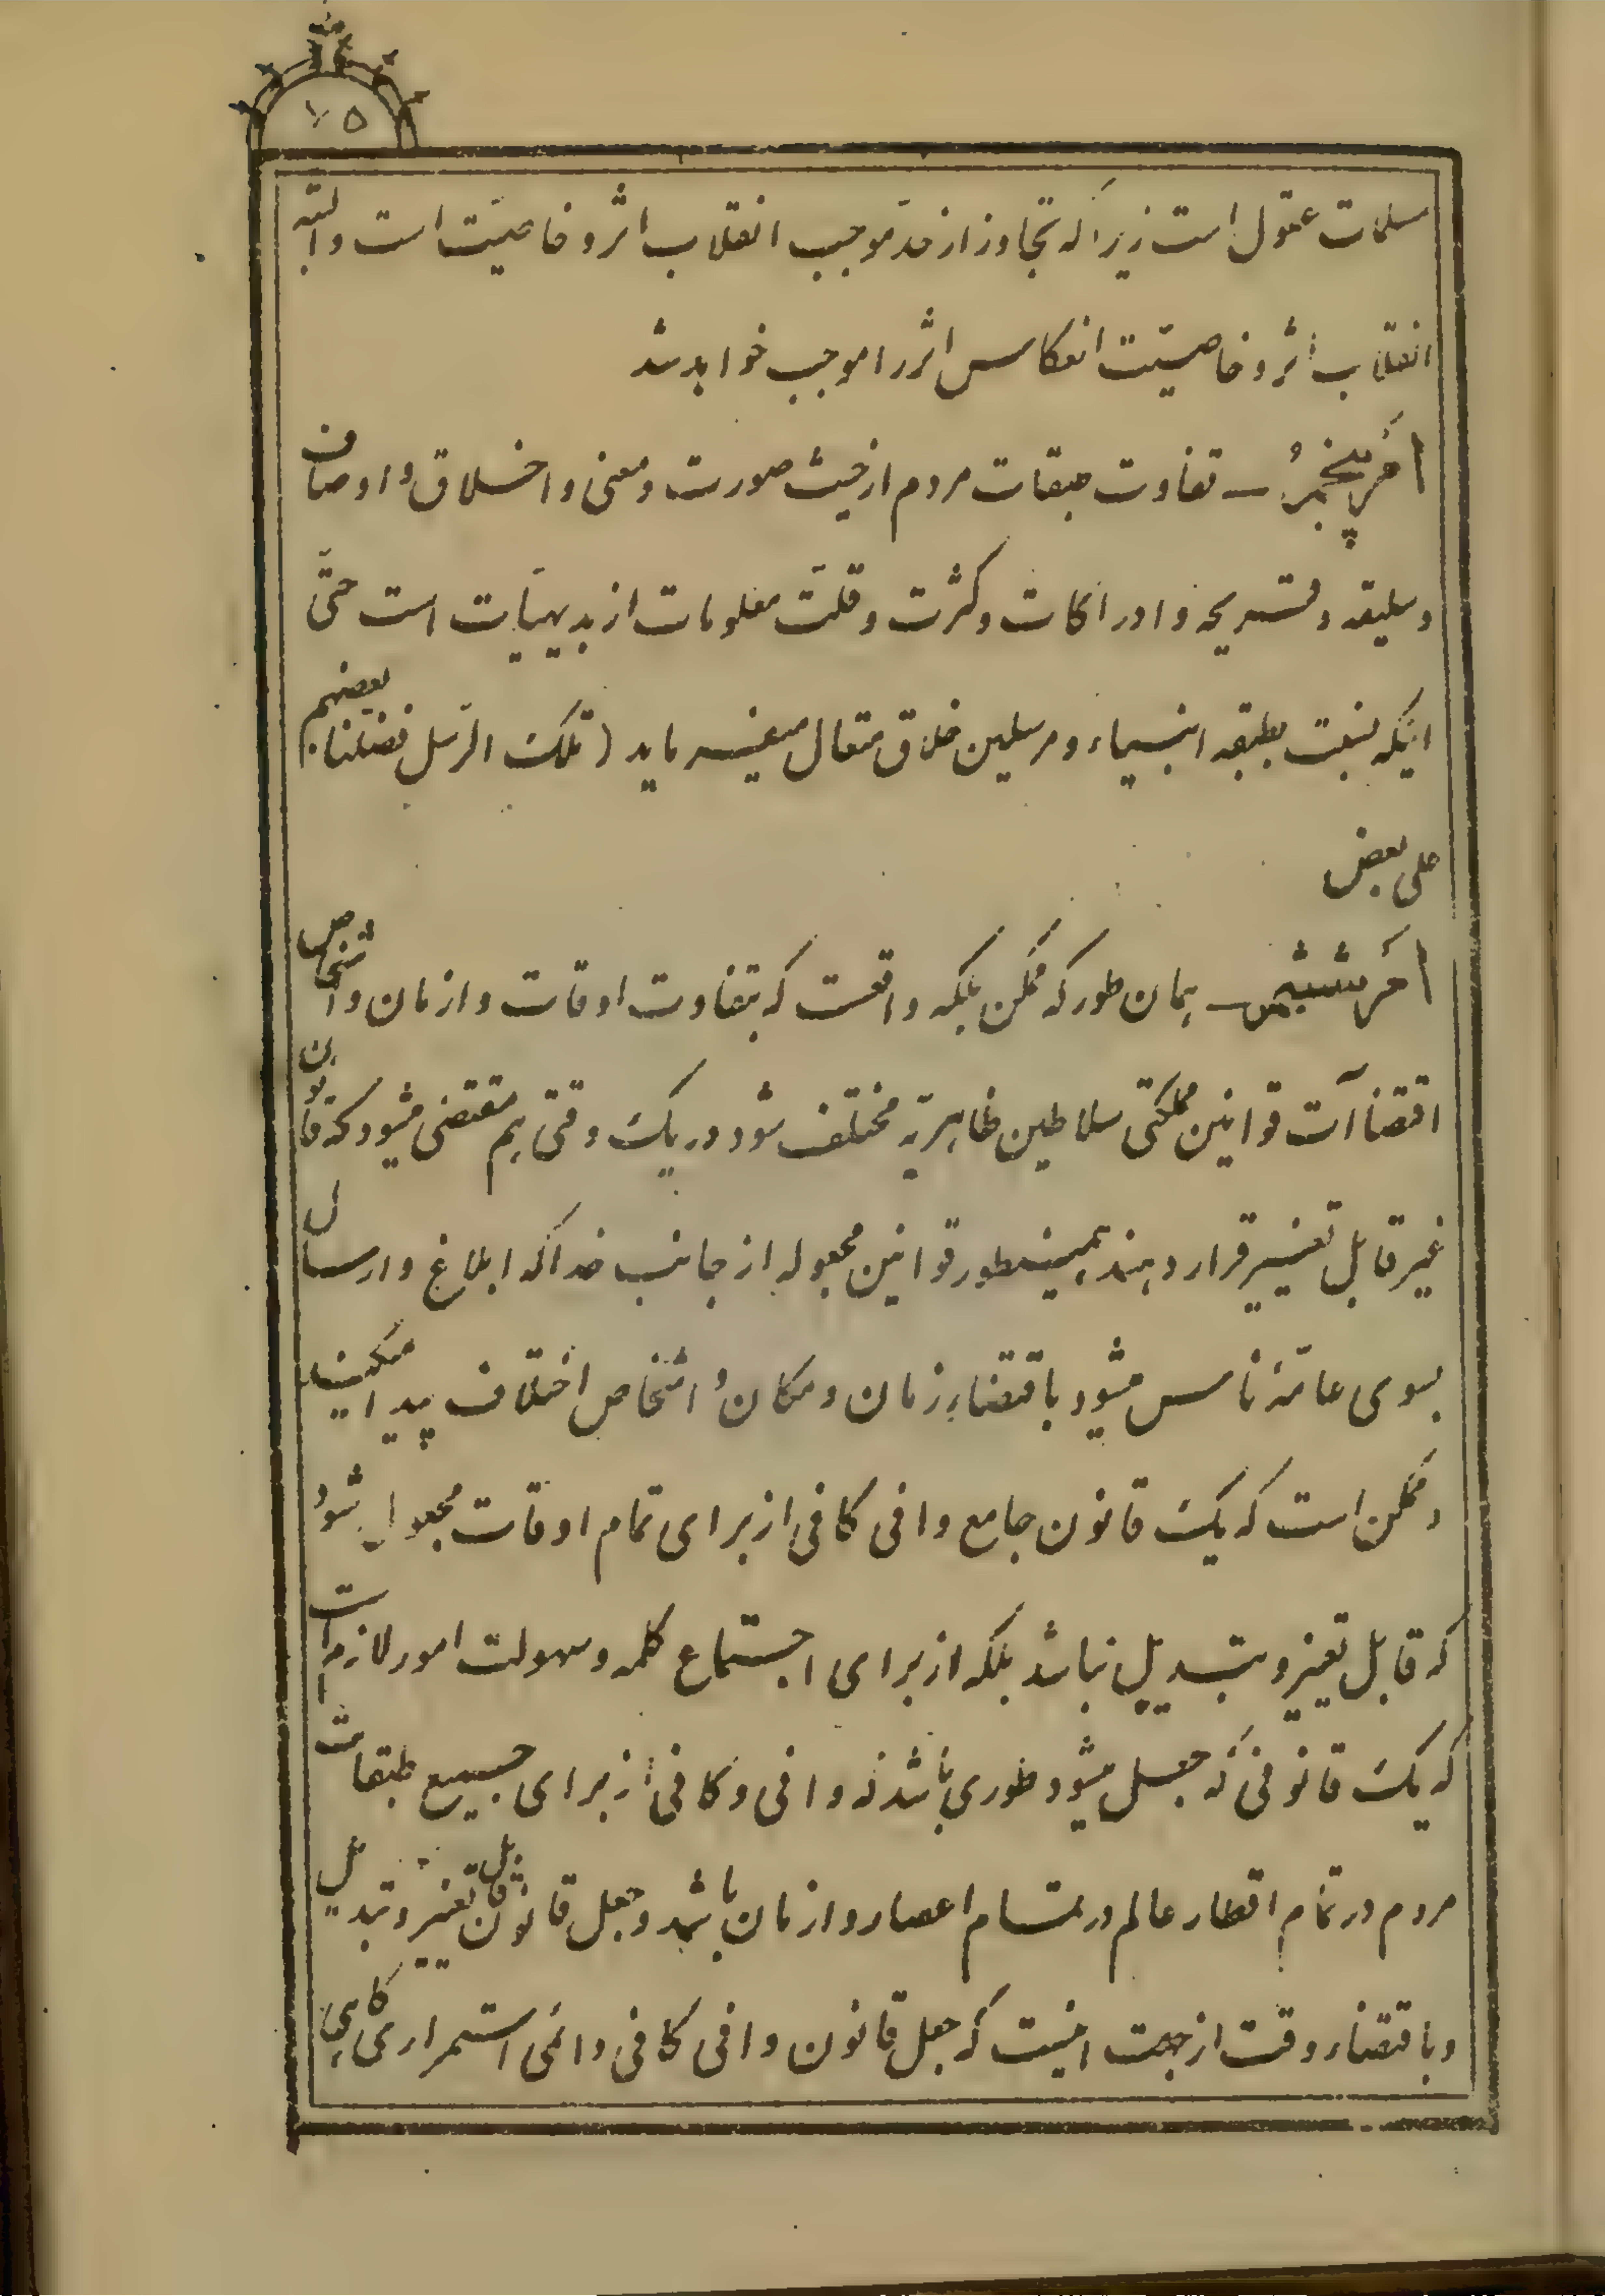 ۷۵
مسلمات عقول است زیرا که تجاوز از حدّ موجب انقلاب اثر و خاصیّت است و البتّه
انقلاب اثر و خاصیّت انعکاس اثر را موجب خواهد شد
امر پنجم ـ تفاوت طبقات مردم از حیث صورت و معنی و اخلاق و اوصاف
و سلیقه و قریحه و ادراکات و کثرت و قلّت معلومات از بدیهیّات است حتّی
اینکه نسبت بطبقه انبیاء و مرسلین خلاق متعال میفرماید (تلک الرّسل فضّلنا بعضهم
علی بعض
امر ششم ـ همان طور که ممکن بلکه واقعست که بتفاوت اوقات و ازمان و اشخاص
اقتضاآت قوانین مملکتی سلاطین ظاهریّه مختلف شود در یک وقتی هم مقتضی میشود که قانون
غیر قابل تغییر قرار دهند همینطور قوانین مجعوله از جانب خدا که ابلاغ و ارسال
بسوی عامّهٔ ناس میشود باقتضاء زمان و مکان و اشخاص اختلاف پیدا میکند
و ممکن است که یک قانون جامع وافی کافی از برای تمام اوقات مجعول شود
که قابل تغییر و تبدیل نباشد بلکه از برای اجتماع کلمه و سهولت امور لازم است
که یک قانونی که جعل میشود طوری باشد که وافی و کافی از برای جمیع طبقات
مردم در تمام اقطار عالم در تمام اعصار و ازمان باشد و جعل قانون قابل تغییر و تبدیل
و باقتضاء وقت از جهت اینست که جعل قانون وافی کافی دائمی استمراری گاهی